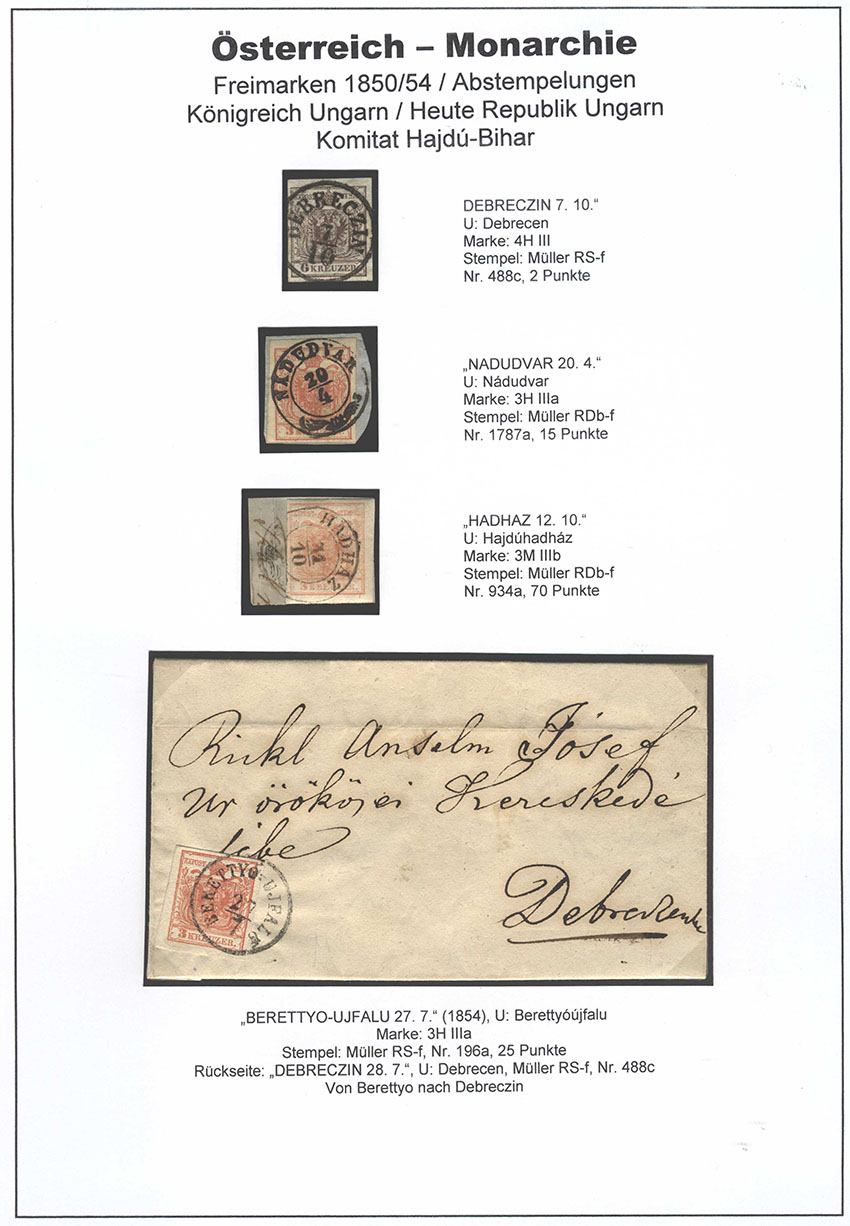 Österreich – Monarchie
Freimarken 1850/54 / Abstempelungen
Königreich Ungarn / Heute Republik Ungarn
Komitat Hajdú-Bihar
DEBRECZIN
7
10
6 KREUZER
DEBRECZIN 7. 10.“
U: Debrecen
Marke: 4H III
Stempel: Müller RS-f
Nr. 488c, 2 Punkte
NÁDUDVAR
20
4
„NADUDVAR 20. 4.“
U: Nádudvar
Marke: 3H IIIa
Stempel: Müller RDb-f
Nr. 1787a, 15 Punkte
HADHÁZ
10
„HADHAZ 12. 10.“
U: Hajdúhadház
Marke: 3M IIIb
Stempel: Müller RDb-f
Nr. 934a, 70 Punkte
Rickl Anselm Jósef
Ur örökösei Kereskedé
sibe
Debreczenbe
BERETTYO-UJFALU
27
7
3 KREUZER.
„BERETTYO-UJFALU 27. 7.“ (1854), U: Berettyóújfalu
Marke: 3H IIIa
Stempel: Müller RS-f, Nr. 196a, 25 Punkte
Rückseite: „DEBRECZIN 28. 7.“, U: Debrecen, Müller RS-f, Nr. 488c
Von Berettyo nach Debreczin